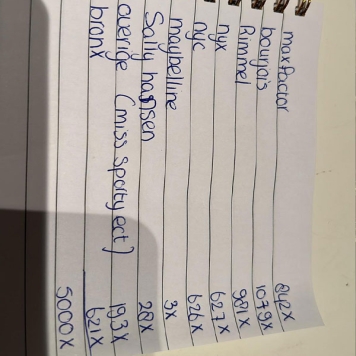 maxfactor 842x
bourjois 1079x
Rimmel 981x
nyx 627x
nyc 626x
maybelline 3x
Sally hansen 28x
overige (miss sporty ect) 193x
bronx 621x
5000x